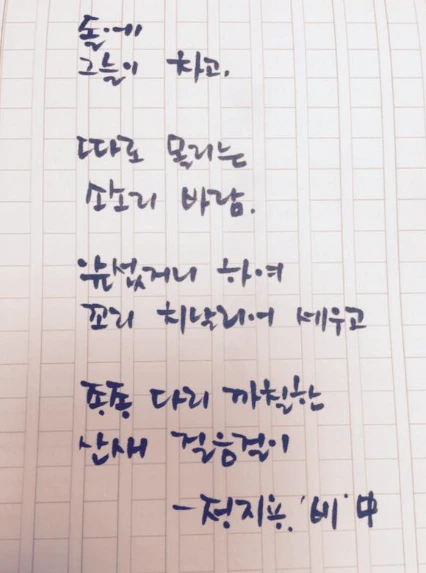 돌에
그늘이 차고,
따로 몰리는
소소리 바람.
앞섰거니 하여
꼬리 치날리어 세우고
종종 다리 까칠한
산새 걸음걸이
-정지용, '비' 中